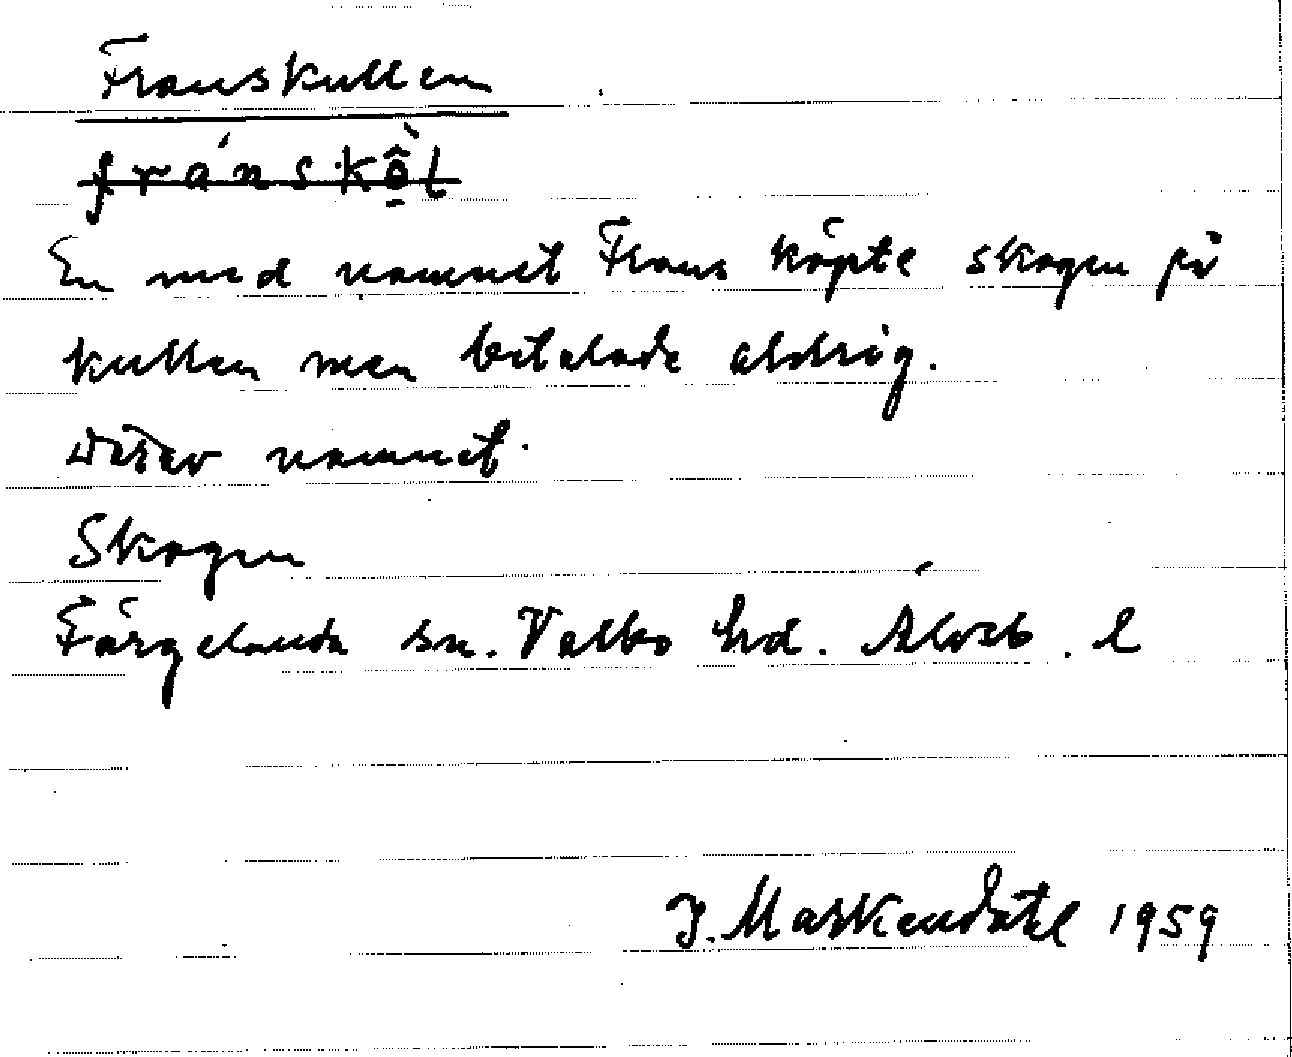 Franskullen
fránskồ̱l
En med namnet Frans köpte skogen på
kullen men betalade aldrig.
Därav namnet.
Skogen
Färgelanda sn. Valbo hd. Älvsb. l
J. Markendahl 1959